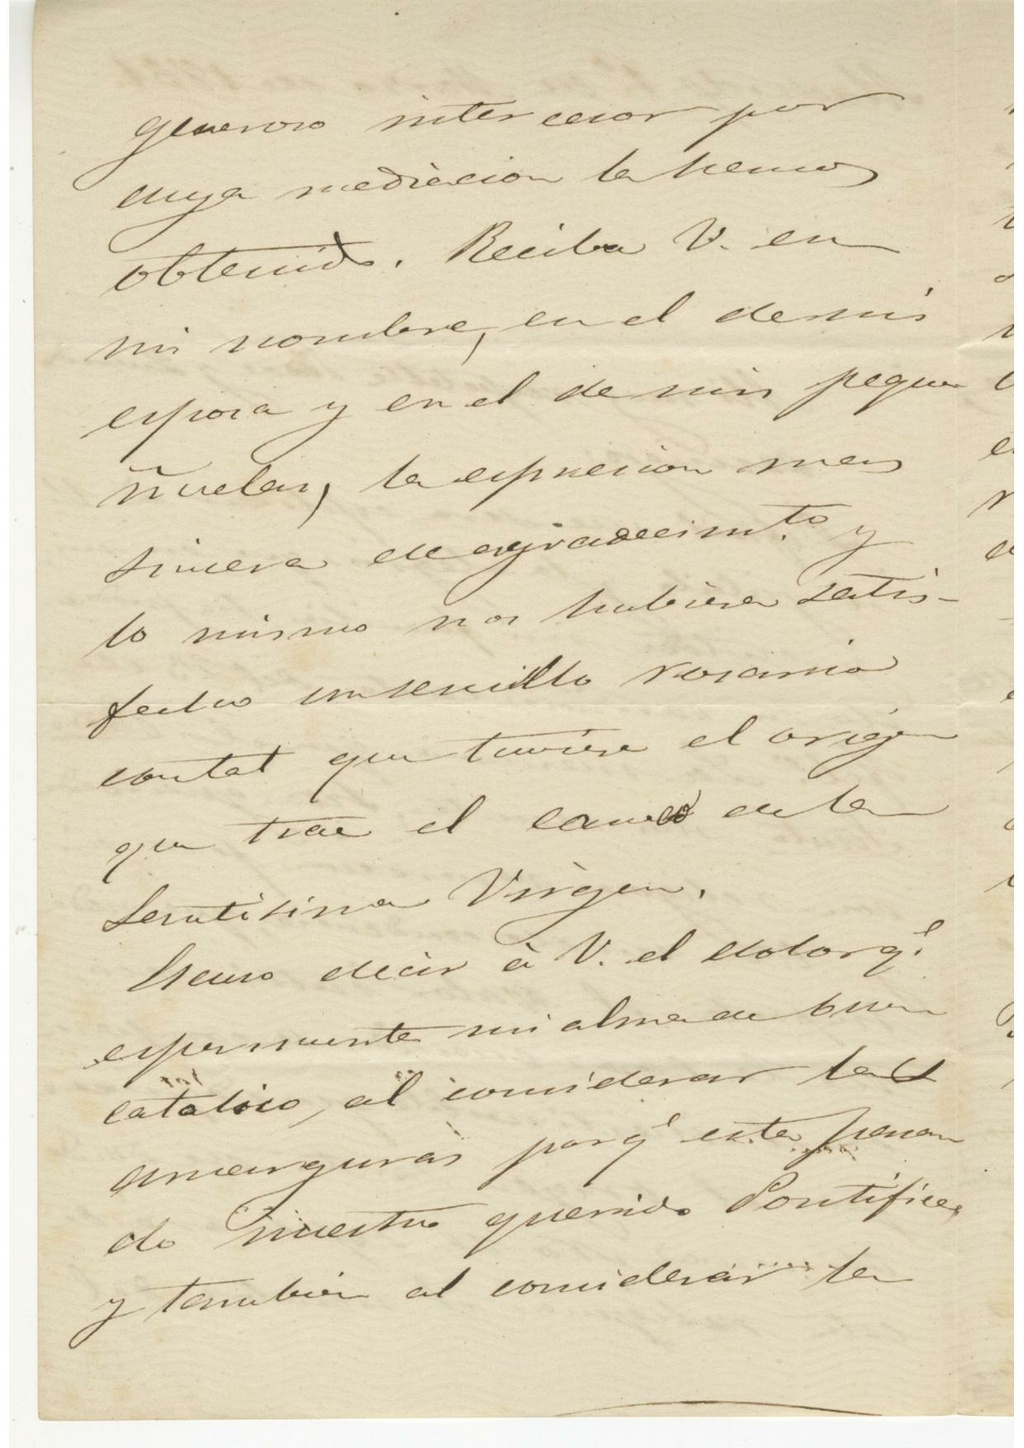 generoso intercesor por
cuya mediacion la hemos
obtenido. Reciba V. en
mi nombre, en el de mi
esposa y en el de mis peque
ñuelas, la espresion mas
sincera de agradecimto. y
lo mismo nos hubiera satis-
fecho un sencillo rosario
con tal que tuviera el origen
que trae el cameo de la
Santisima Virgen.
Escuso decir à V. el dolor q.e
esperimenta mi alma de buen
catolico, al considerar las
amarguras porq.e esta pasan
do nuestro querido Pontifice,
y tambien al considerar la